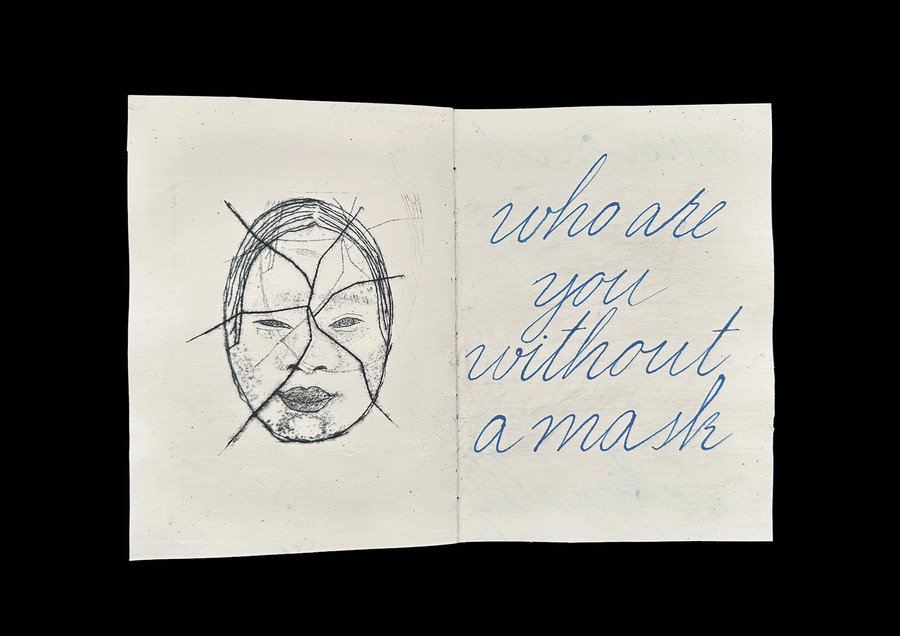 who are
you
without
a mask